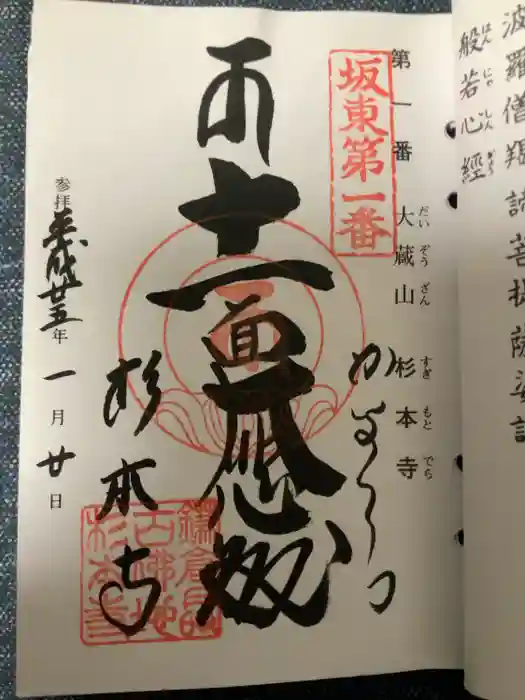 波羅僧羯諦菩提薩婆訶
般若心經
はんにゃしんぎょう
第一番 大蔵山 杉本寺
だいぞうざん すぎもとでら
坂東第一番
かまくら
十一面大悲殿
杉本寺
鎌倉最
古佛地
杉本寺
参拝 平成廿五年 一月廿日